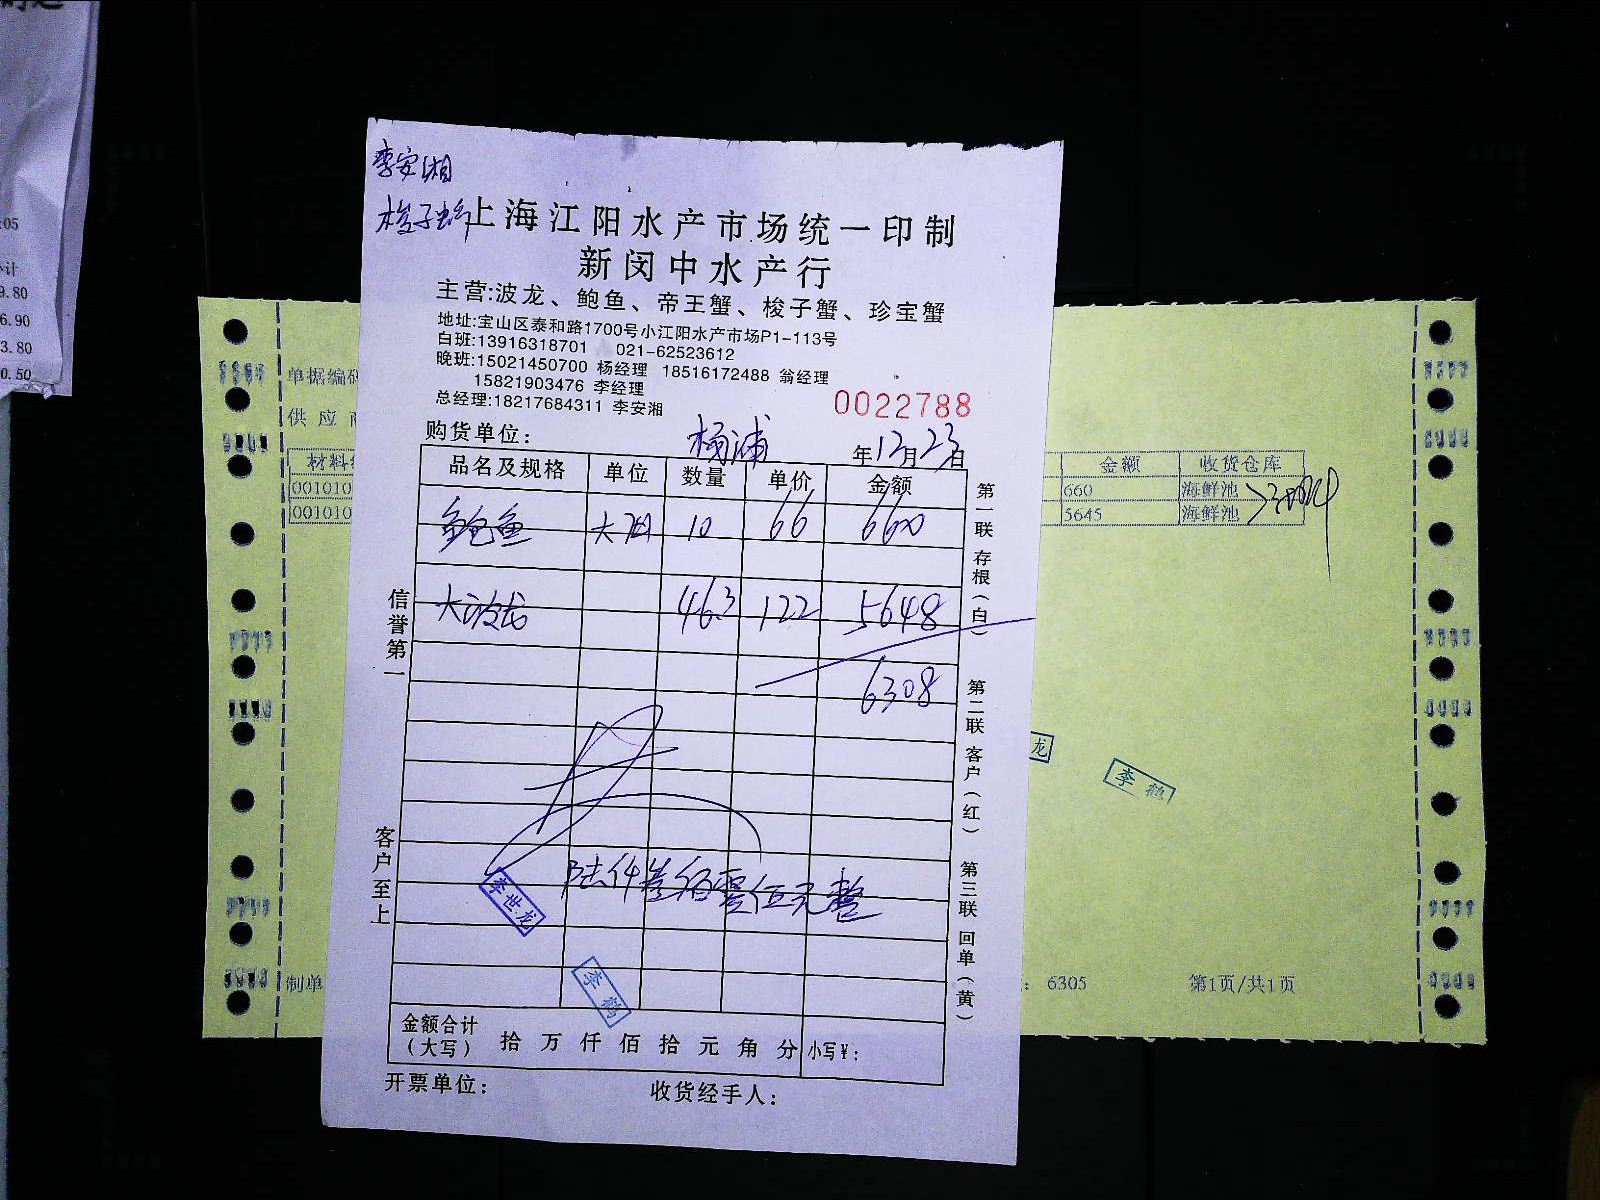 :05
小计
9.80
6.90
3.80
0.50
李安湘
梭子蟹
上海江阳水产市场统一印制
新闵中水产行
主营:波龙、鲍鱼、帝王蟹、梭子蟹、珍宝蟹
地址:宝山区泰和路1700号小江阳水产市场P1-113号
白班:13916318701 021-62523612
晚班:15021450700 杨经理 18516172488 翁经理
15821903476 李经理
总经理:18217684311 李安湘
0022788
购货单位: 杨浦 年12月23日
品名及规格 单位 数量 单价 金额
鲍鱼 10 66 660
大波龙 46.3 122 5648
6308
陆仟叁佰零伍元整
李世龙
李鹤
金额合计
(大写) 拾万仟佰拾元角分 小写¥:
开票单位: 收货经手人:
信誉第一
客户至上
第一联 存根(白)
第二联 客户(红)
第三联 回单(黄)
单据编码
供应商
材料
001010
001010
制单
金额 收货仓库
660 海鲜池
5645 海鲜池
龙
李鹤
: 6305 第1页/共1页